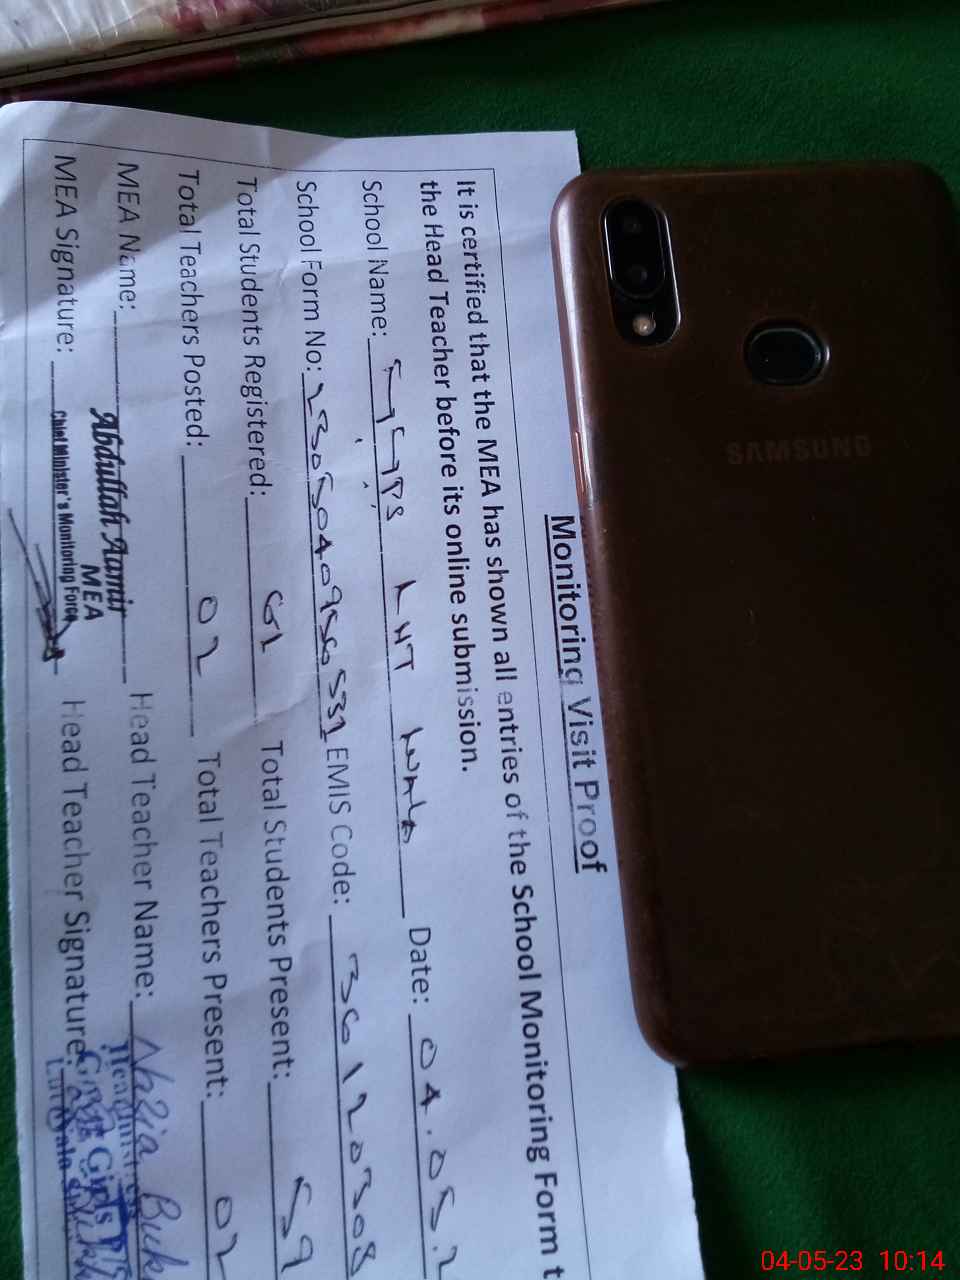 Monitoring Visit Proof
It is certified that the MEA has shown all entries of the School Monitoring Form t
the Head Teacher before its online submission.
School Name: Date: 04.05.2
School Form No: EMIS Code: 36120308
Total Students Registered: 61 Total Students Present: 59
Total Teachers Posted: 02 Total Teachers Present: 02
MEA Name: Abdullah Aamir Head Teacher Name: Nazia Bukh
MEA
MEA Signature: Chief Minister's Monitoring Force Head Teacher Signature:
SAMSUNG
04-05-23 10:14